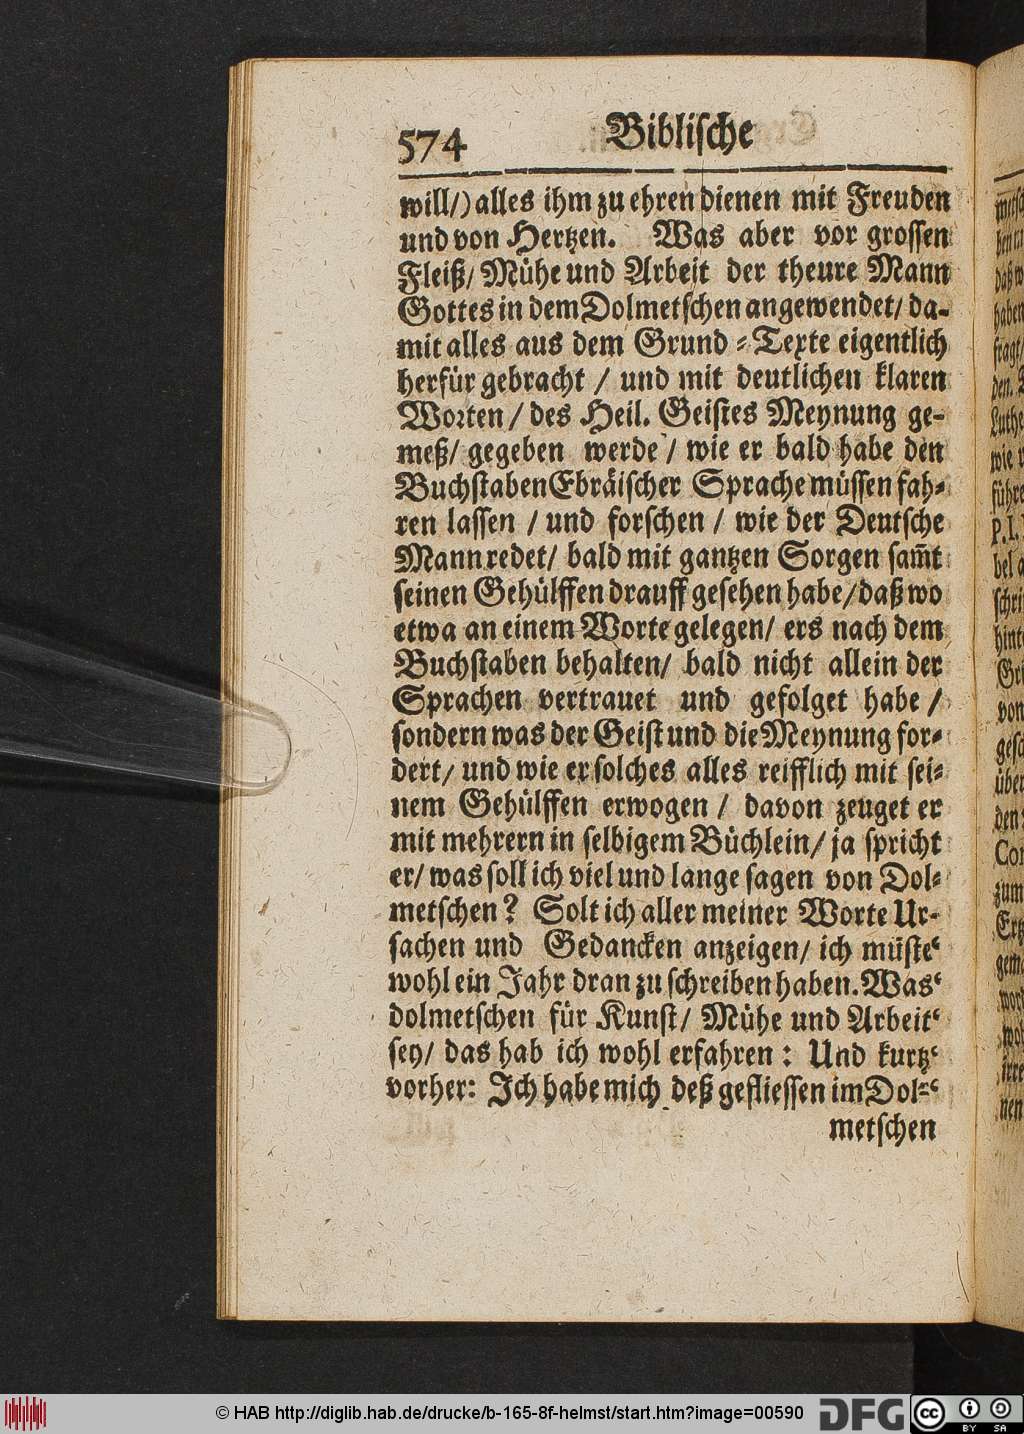 574 Biblische
will/) alles ihm zu ehren dienen mit Freuden
und von Hertzen. Was aber vor grossen
Fleiß/ Mühe und Arbeit der theure Mann
Gottes in dem Dolmetschen angewendet/ da-
mit alles aus dem Grund-Texte eigentlich
herfür gebracht / und mit deutlichen klaren
Worten / des Heil. Geistes Meynung ge-
meß/ gegeben werde / wie er bald habe den
Buchstaben Ebräischer Sprache müssen fah-
ren lassen / und forschen / wie der Deutsche
Mann redet/ bald mit gantzen Sorgen sam̃t
seinen Gehülffen drauff gesehen habe/ daß wo
etwa an einem Worte gelegen/ ers nach dem
Buchstaben behalten/ bald nicht allein der
Sprachen vertrauet und gefolget habe /
sondern was der Geist und die Meynung for-
dert/ und wie er solches alles reifflich mit sei-
nem Gehülffen erwogen / davon zeuget er
mit mehrern in selbigem Büchlein/ ja spricht
er/ was soll ich viel und lange sagen von Dol-
metschen? Solt ich aller meiner Worte Ur-
sachen und Gedancken anzeigen/ ich müste‘
wohl ein Jahr dran zu schreiben haben. Was‘
dolmetschen für Kunst/ Mühe und Arbeit‘
sey/ das hab ich wohl erfahren: Und kurtz‘
vorher: Ich habe mich deß gefliessen im Dol-‘
metschen
© HAB http://diglib.hab.de/drucke/b-165-8f-helmst/start.htm?image=00590 DFG cc BY SA